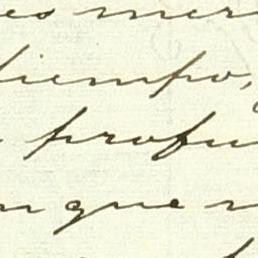 es mer
tiempo,
profu
nque n